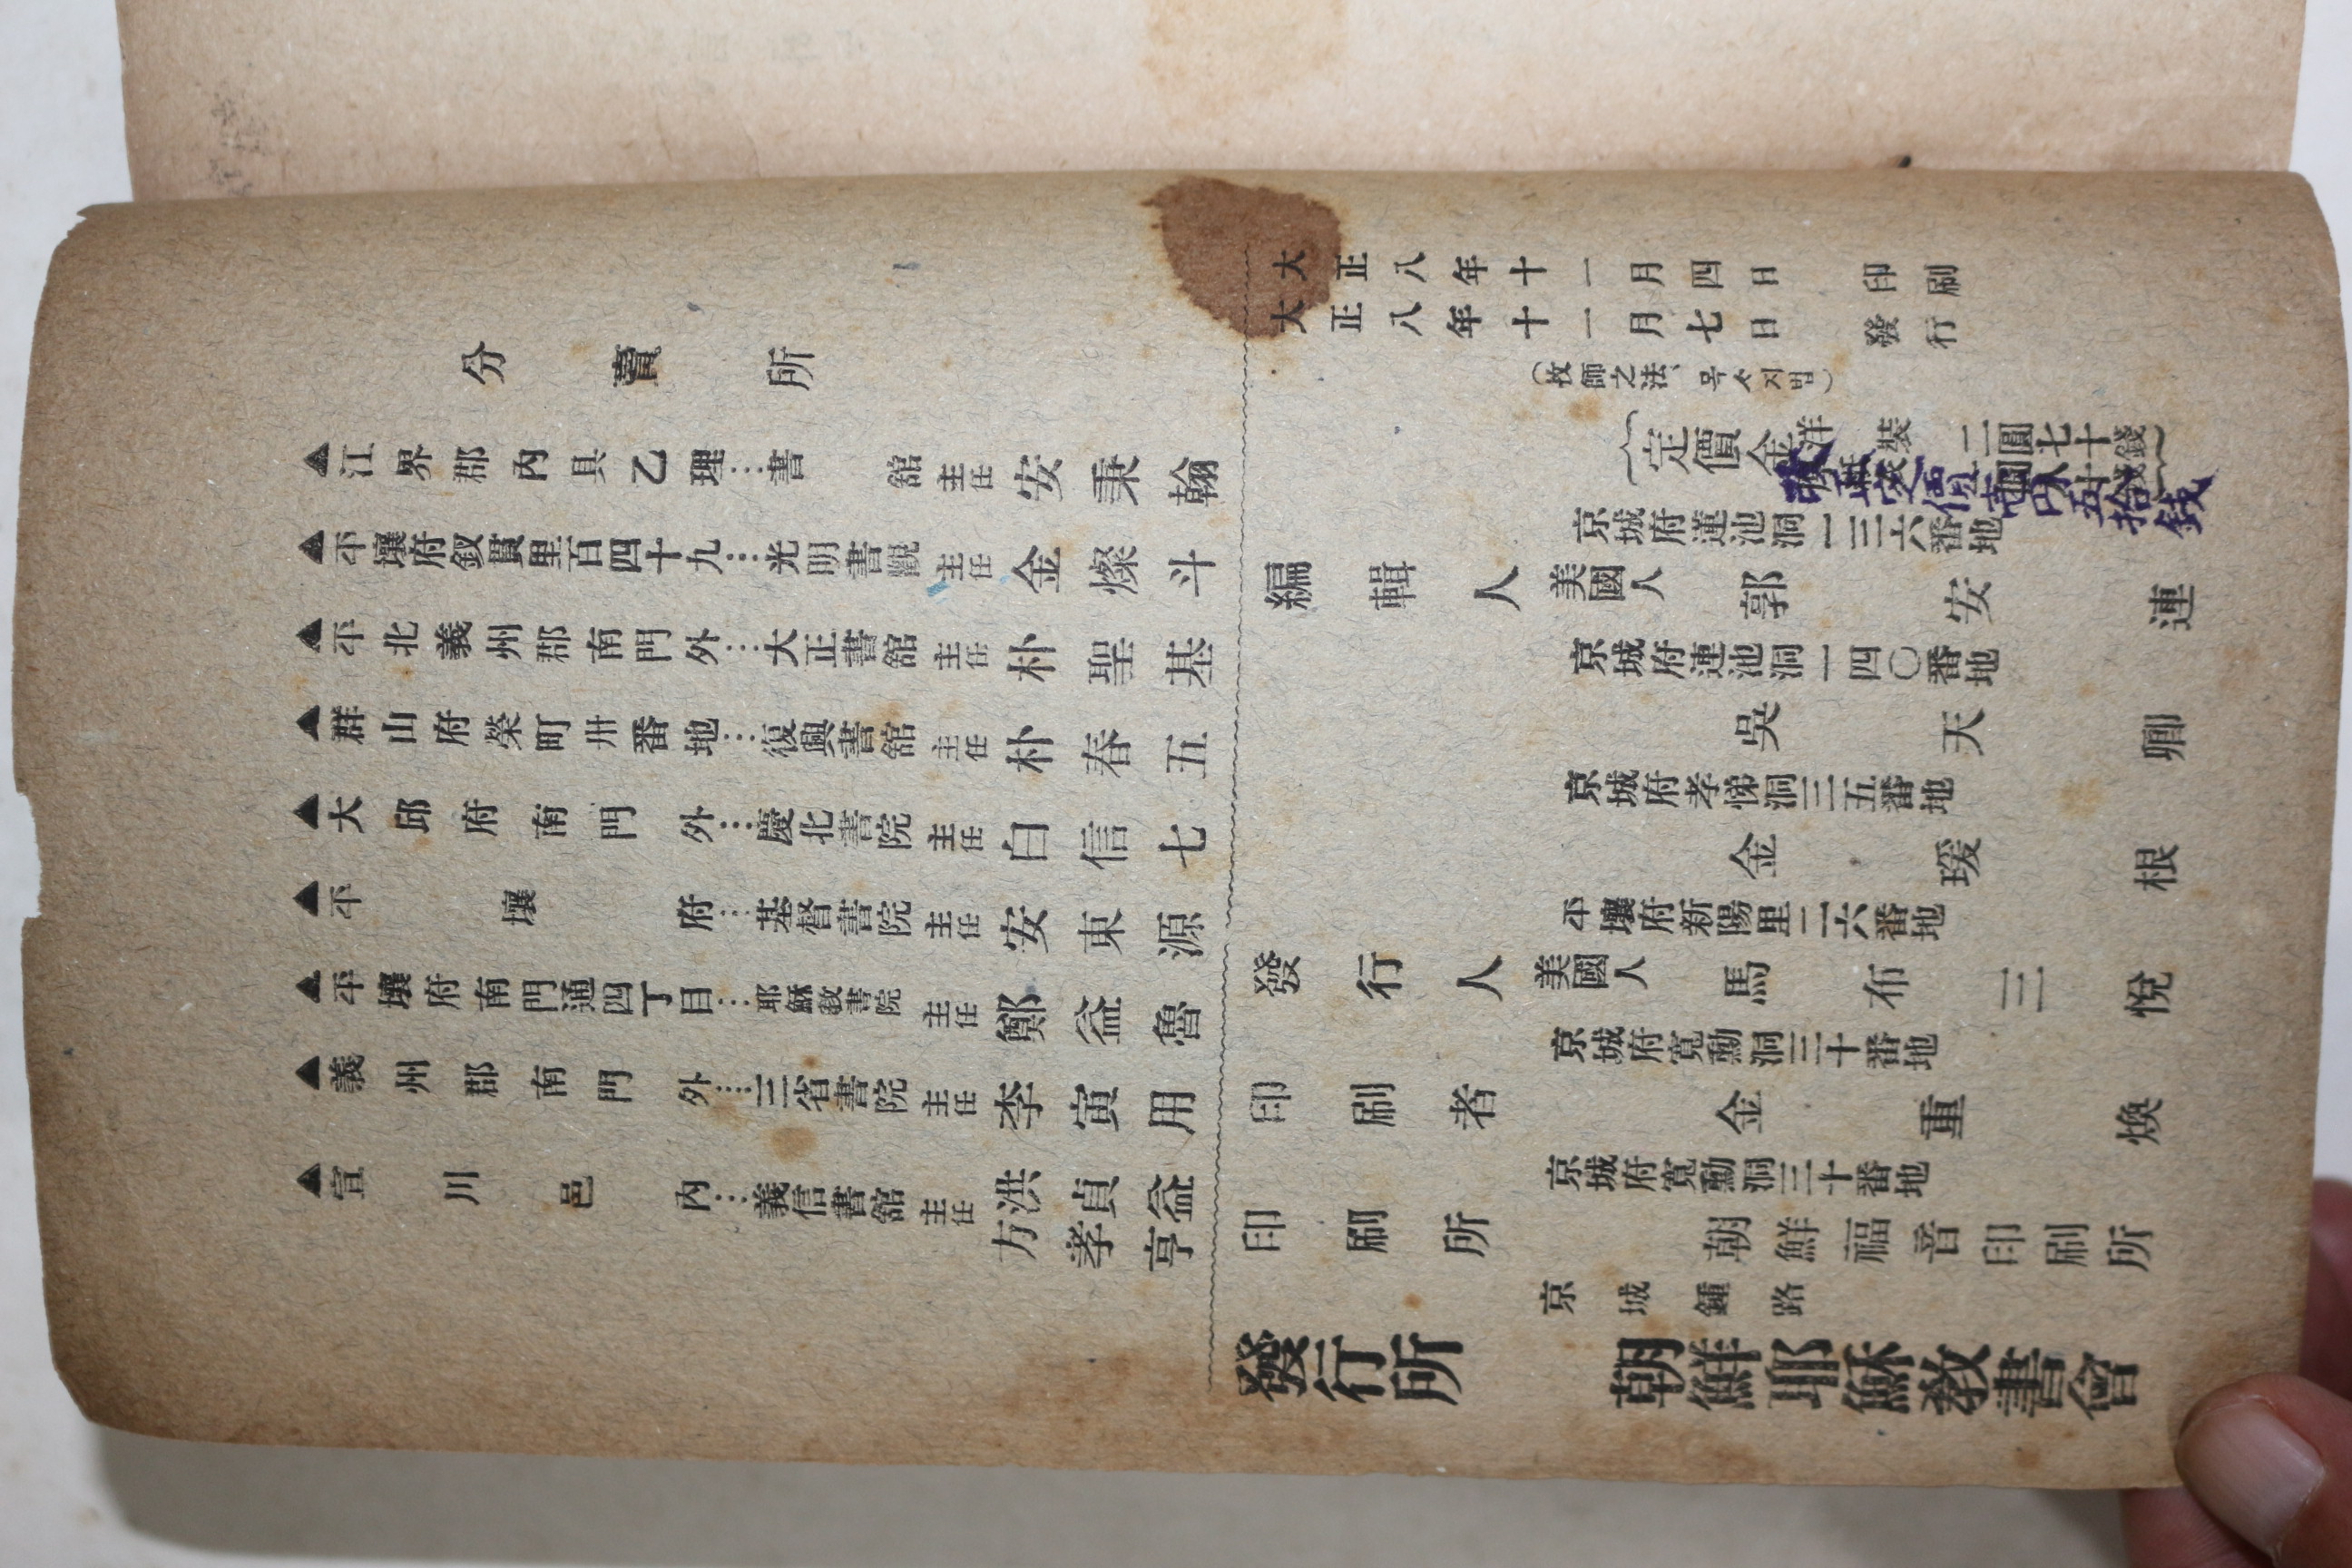 分賣所
▲江界郡內具乙理…書舘 主任 安秉翰
▲平壤府釵貫里百四十九…光明書觀 主任 金燦斗
▲平北義州郡南門外…大正書舘 主任 朴聖基
▲群山府榮町卅番地…復興書舘 主任 朴春五
▲大邱府南門外…慶北書院 主任 白信七
▲平壤府…基督書院 主任 安東源
▲平壤府南門通四丁目…耶穌敎書院 主任 鄭益魯
▲義州郡南門外…三省書院 主任 李寅用
▲宣川邑內…義信書舘 主任 洪貞益
方孝亨
大正八年十一月四日 印刷
大正八年十一月七日 發行
(牧師之法、목ᄉᆞ지법)
定價金 洋裝 二圓七十錢
改正定價壱円五拾銭
京城府蓮池洞一三六番地
編輯人 美國人 郭安連
京城府連池洞一四〇番地
吳天卿
京城府孝悌洞三五番地
金瑗根
平壤府新陽里二六番地
發行人 美國人 馬布三悅
京城府寬勳洞三十番地
印刷者 金重煥
京城府寬勳洞三十番地
印刷所 朝鮮福音印刷所
京城鍾路
發行所 朝鮮耶穌敎書會